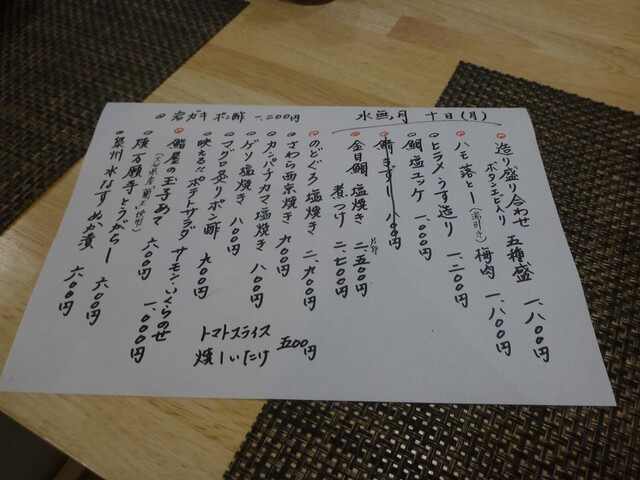 水無月 十日(月)
造り盛り合わせ 五種盛 一、八〇〇円
ボタンエビ入り
ハモ落とし(湯引き) 梅肉 一、八〇〇円
ヒラメ・うす造り 一、二〇〇円
鯛 塩ユッケ 一、〇〇〇円
鯖きずし 八〇〇円
金目鯛 塩焼き 二、五〇〇円
煮つけ 二、七〇〇円
のどぐろ塩焼き 二、九〇〇円
さわら西京焼き 九〇〇円
カンパチカマ塩焼き 八〇〇円
ゲソ塩焼き 八〇〇円
マグロ炙りポン酢 九〇〇円
映えるだポテトサラダ サーモン・いくらのせ 一、〇〇〇円
鮨屋の玉子あて 六〇〇円
焼 万願寺とうがらし 六〇〇円
泉州 水なす ぬか漬 六〇〇円
岩ガキ ポン酢 一、二〇〇円
トマトスライス
焼しいたけ
五〇〇円